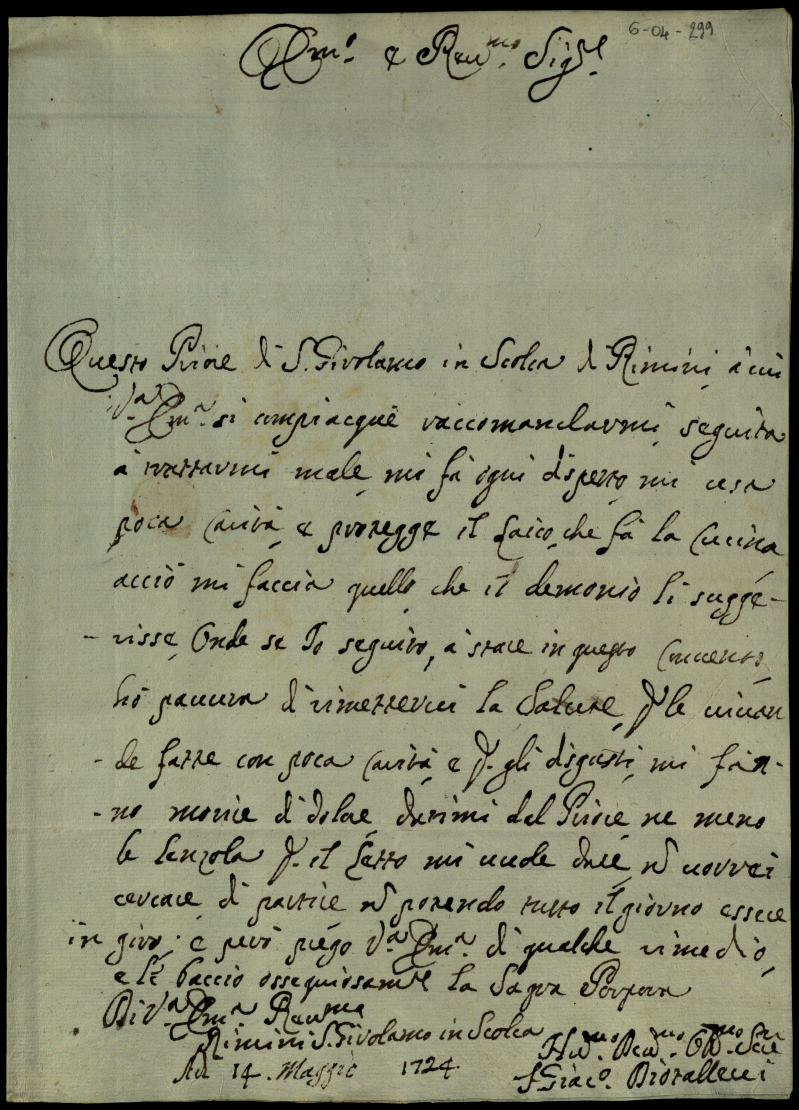 6-04-299
Em.o e Reu.mo Sig.re
Questo Priore di S. Girolamo in Scolca di Rimini, à cui
V.a Em.a si compiacque raccomandarmi, seguita
à trattarmi male, mi fà ogni dispetto, mi usa
poca carità, e protegge il Laico, che fà la cucina
acciò mi faccia quello che il demonio li sugge-
-risse, Onde se Io seguito, à stare in questo Conuento,
hò paura di rimetterui la Salute, p le uiuan
-de fatte con poca carità, e p. gli disgusti, mi fan-
-no morire di dolore, datimi dal Priore, ne meno
le lenzola p. il Letto mi uuole dare, nō uorrei
cercare di partire nō potendo tutto il giorno essere
in giro; e però priego V.a Em.a di qualche rimedio,
e le baccio ossequiosam.te la Sagra Porpora
Di V.a Em.a Reu.ma
Rimini S. Girolamo in Scolca
Adi 14. Maggio 1724
Hu.mo Deu.mo Ob.mo Ser.e
f. Giac.o